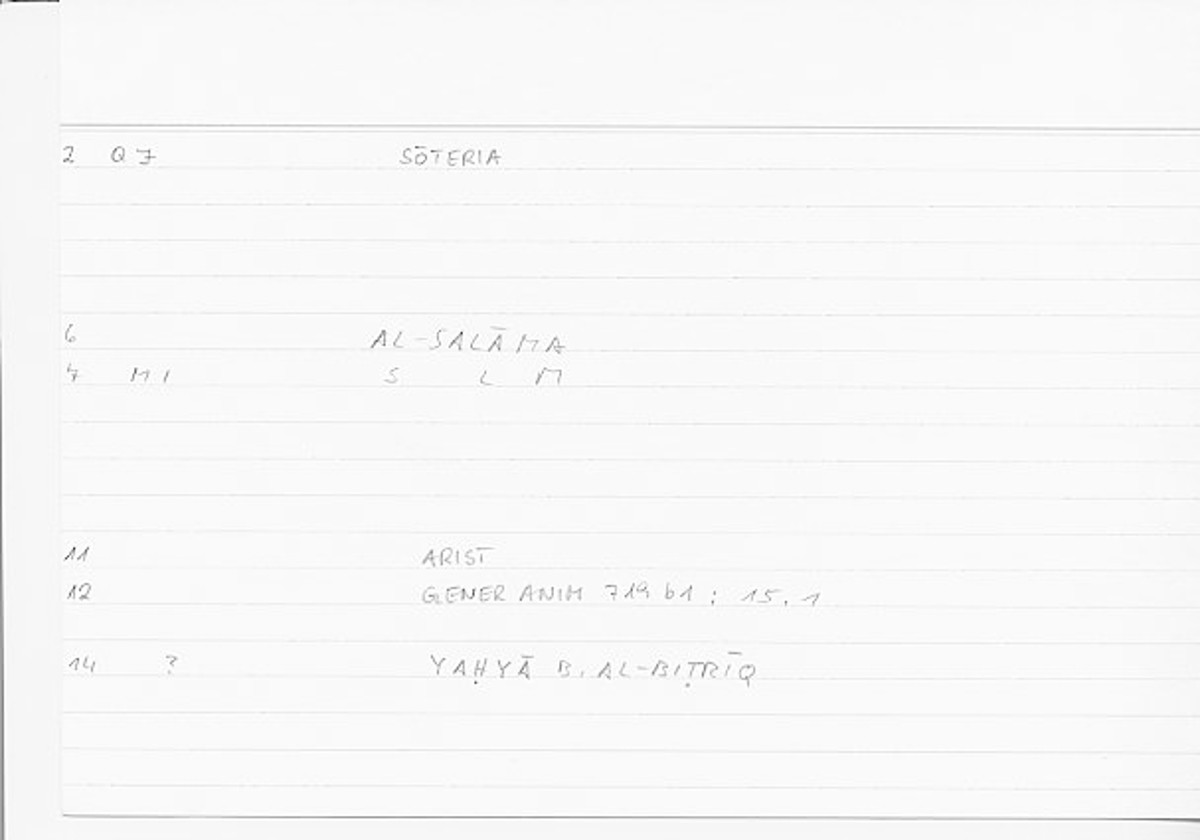 2 Q7 SŌTERIA
6 AL-SALĀMA
7 M1 S L M
11 ARIST
12 GENER ANIM 719 b1 : 15.1
14 ? YAḤYĀ B. AL-BIṬRĪQ